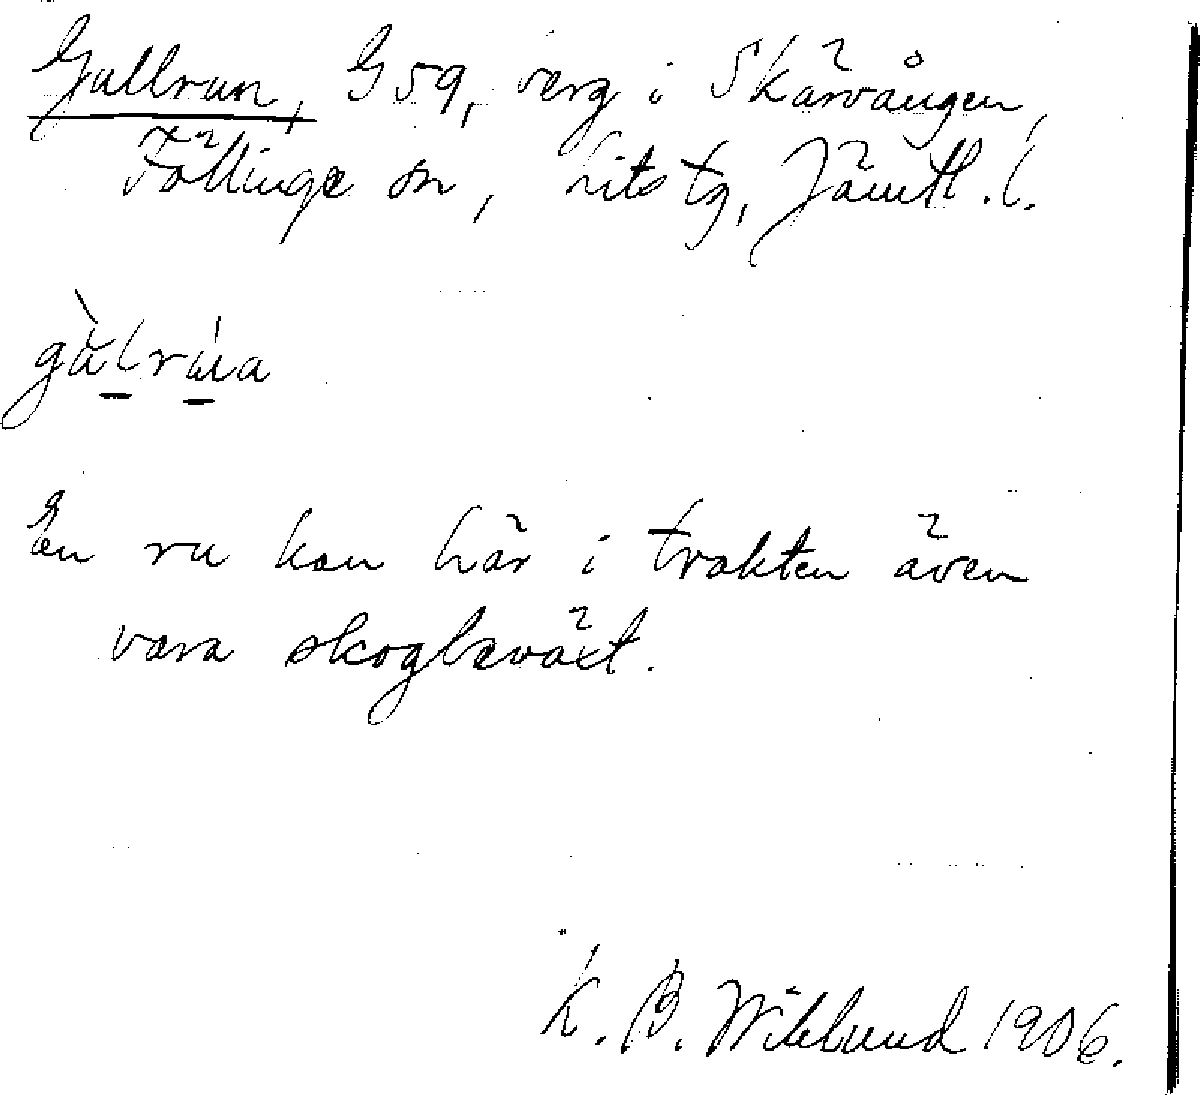 Gullrun, G59, berg i Skärvången,
Föllinge sn, Lits tg, Jämtl. l.
gùlrúa
En ru kan här i trakten även
vara skogbeväxt.
K. B. Wiklund 1906.